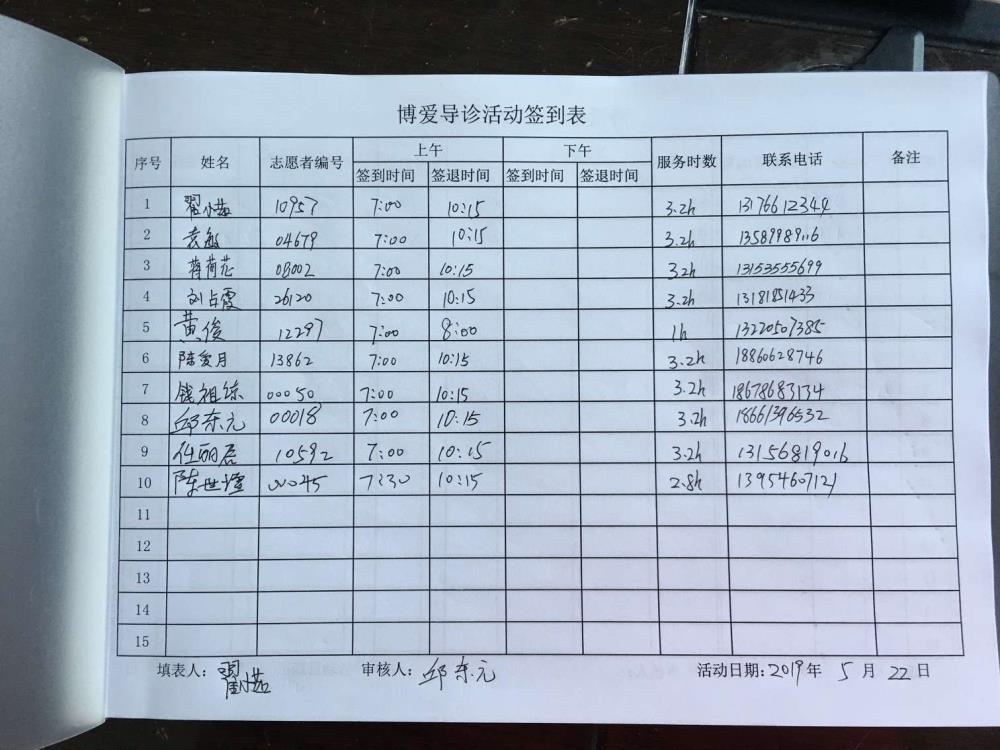 博爱导诊活动签到表
序号 姓名 志愿者编号 上午 下午 服务时数 联系电话 备注
签到时间 签退时间 签到时间 签退时间
1 翟小茹 10957 7:00 10:15 3.2h 13176612344
2 袁敏 04679 7:00 10:15 3.2h 13589989116
3 蒋荷花 08002 7:00 10:15 3.2h 13153555699
4 刘占霞 26120 7:00 10:15 3.2h 13181851433
5 黄俊 12297 7:00 8:00 1h 13220507385
6 陈爱月 13862 7:00 10:15 3.2h 18860628746
7 钱祖练 00050 7:00 10:15 3.2h 18678683134
8 邱东元 00018 7:00 10:15 3.2h 18661396532
9 任丽君 10592 7:00 10:15 3.2h 13156819016
10 陈世 00045 7:30 10:15 2.8h 13954607121
11
12
13
14
15
填表人: 翟小茹 审核人: 邱东元 活动日期: 2019年 5月 22日